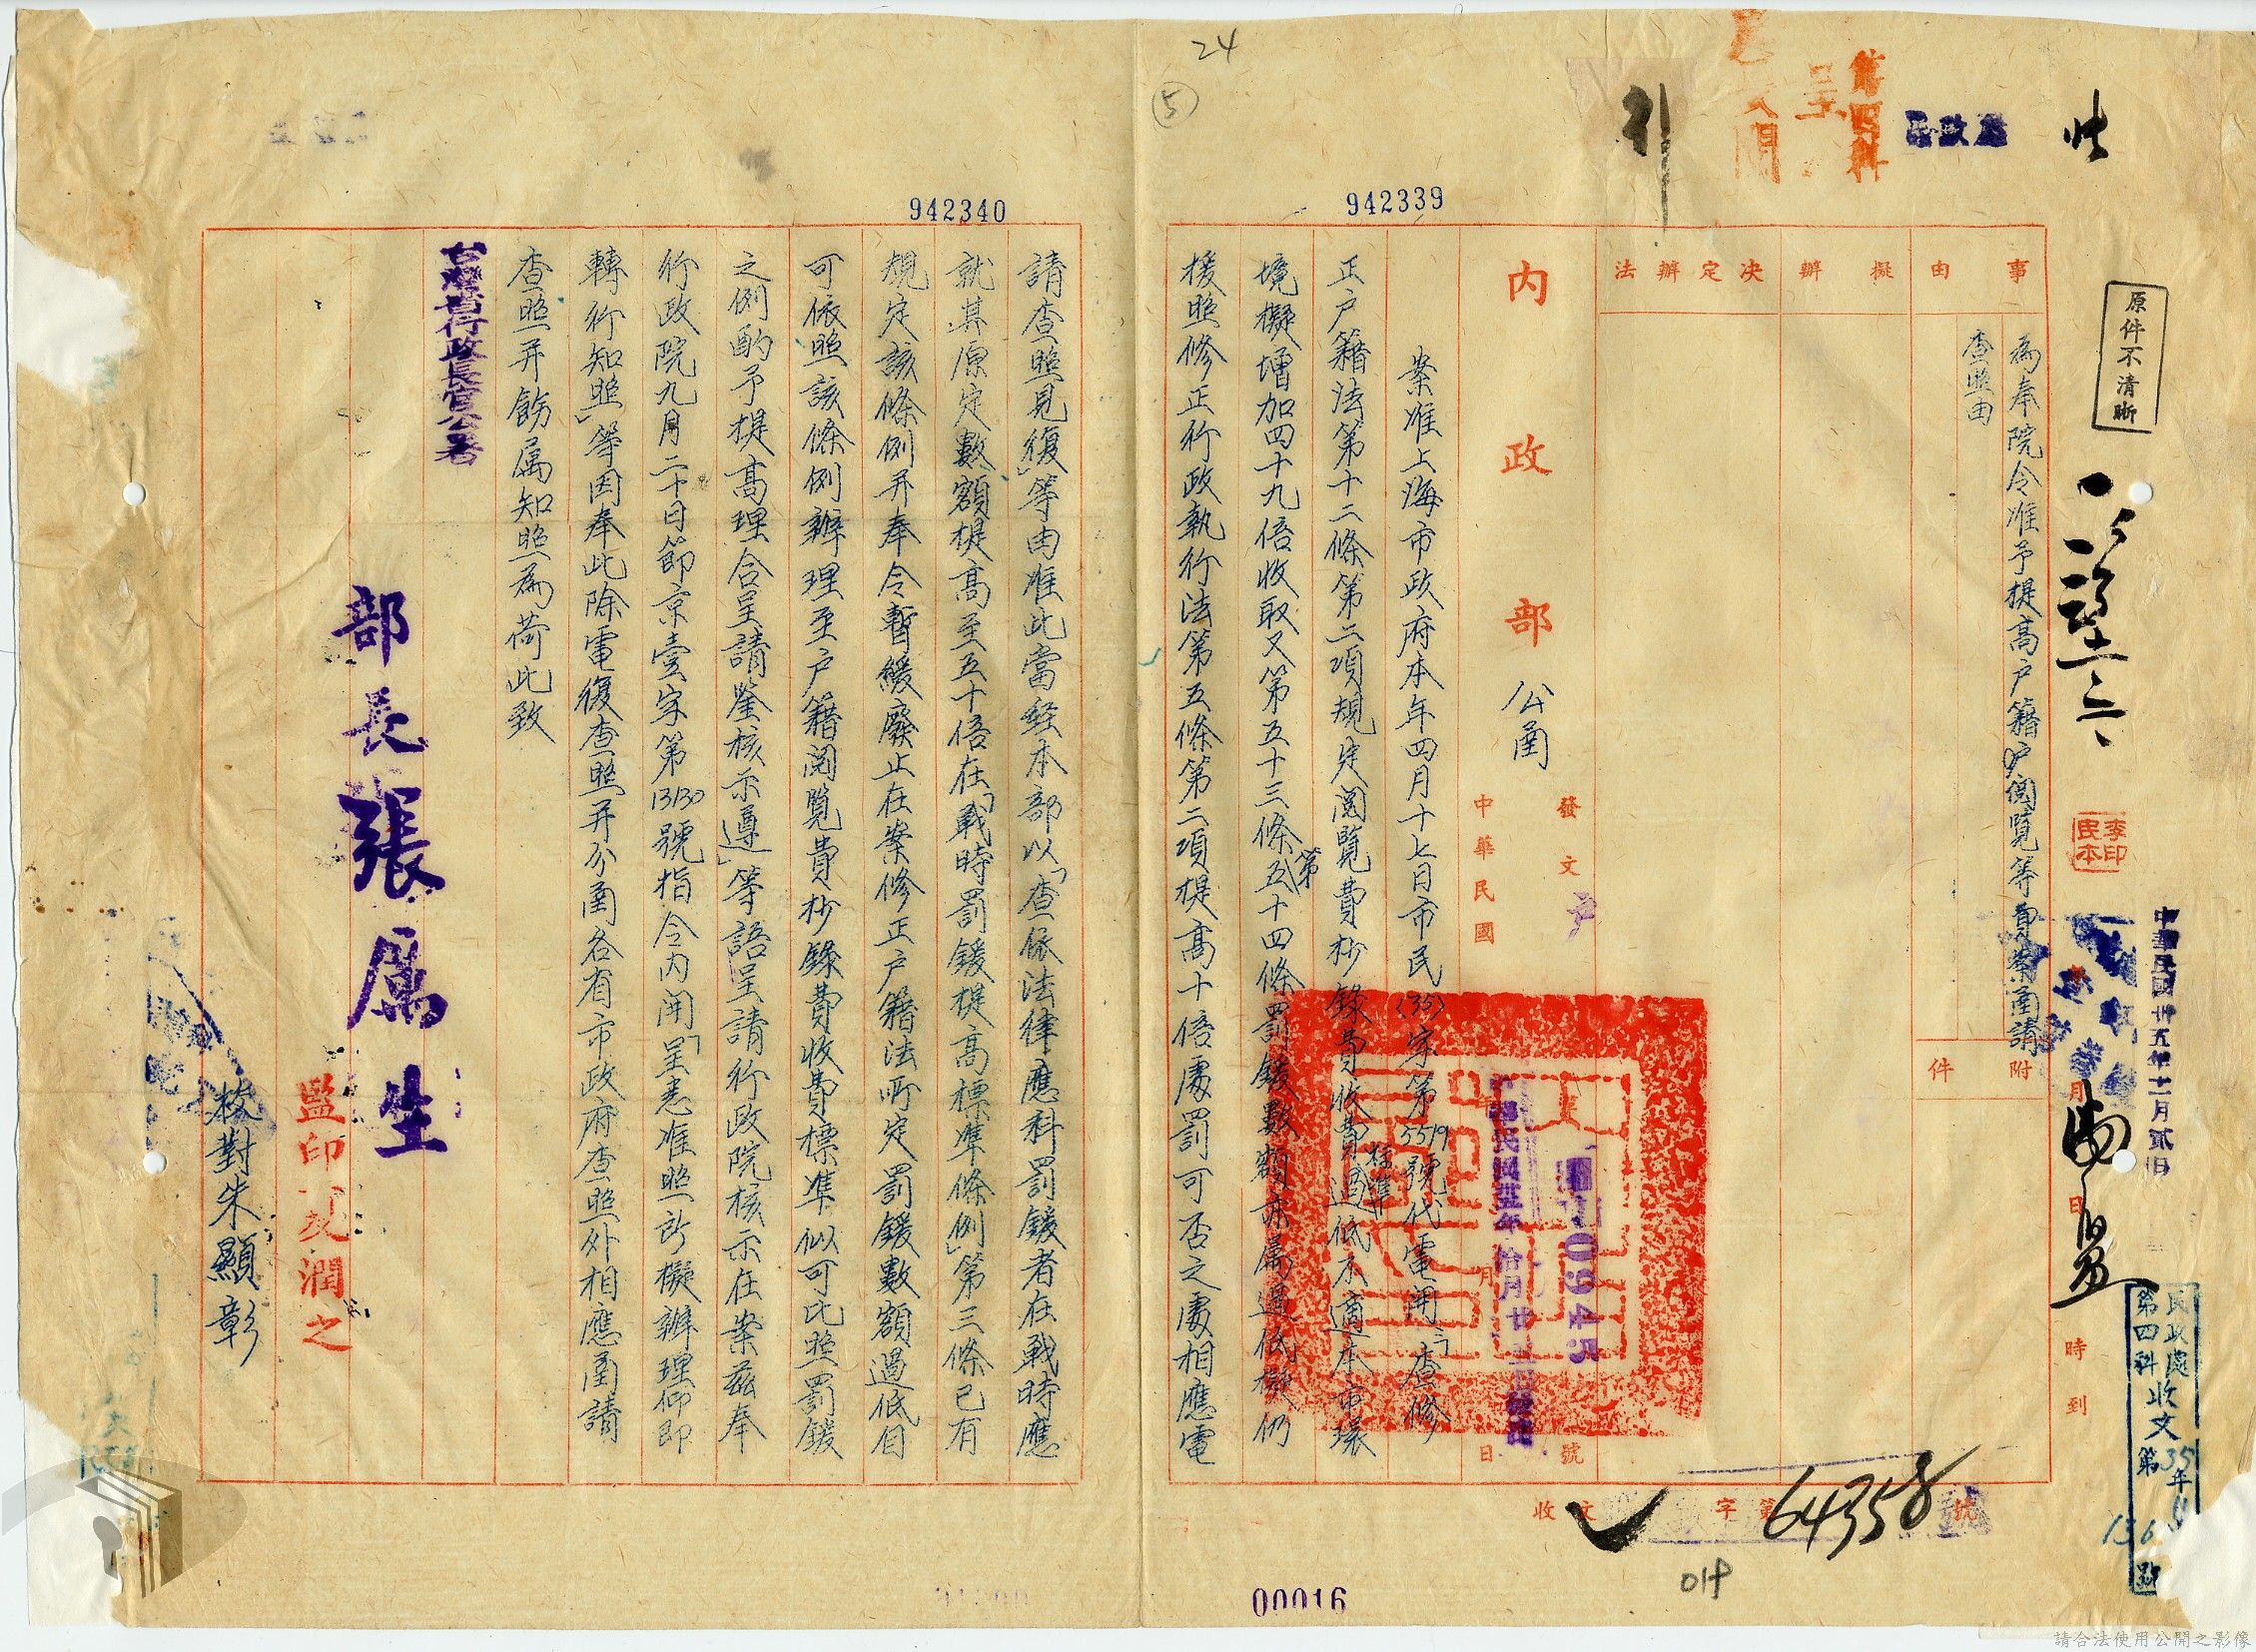 24
⑤
942339
942340
第四科
民政處
原件不清晰
事由
擬辦
決定辦法
附件
為奉院令准予提高户籍閱覽等費案函請
查照由
內政部公函
發文
户
號
中華民國
月
日
中華民國卅五年十一月貳日
李印民本
時到
民政處第四科收文35年
號
案准上海市政府本年四月十七日市民(35)字第5519號代電開「查修
正户籍法第十二條第二項規定閱覽費抄錄費收費標準過低不適本市環
境擬增加四十九倍收取又第五十三條第五十四條罰鍰數額亦屬過低擬仍
援照修正行政執行法第五條第二項提高十倍處罰可否之處相應電
請查照見復」等由准此當經本部以「查依法律應科罰鍰者在戰時應
就其原定數額提高至五十倍在「戰時罰鍰提高標準條例」第三條已有
規定該條例并奉令暫緩廢止在案修正户籍法所定罰鍰數額過低自
可依照該條例辦理至户籍閱覽費抄錄費收費標準似可比照罰鍰
之例酌予提高理合呈請鑒核示遵」等語呈請行政院核示在案茲奉
行政院九月二十日節京壹字第13130號指令內開「呈悉准照所擬辦理仰即
轉行知照」等因奉此除電復查照并分函各省市政府查照外相應函請
查照并飭屬知照為荷此致
台灣省行政長官公署
部長張厲生
監印
潤之
校對朱顯彰
收文
字第
64358
號
019
00016
請合法使用公開之影像